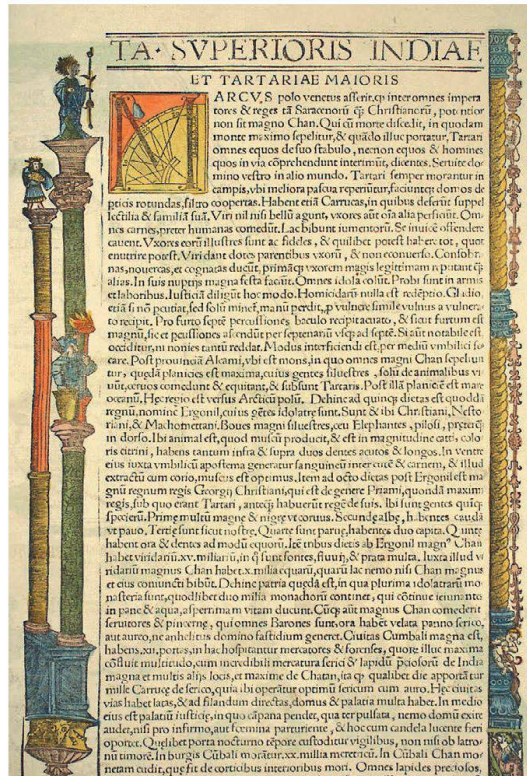 TA· SVPERIORIS INDIAE
ET TARTARIAE MAIORIS
MARCVS polo venetus asserit, ꝙ inter omnes impera
tores & reges tā Saracenorū ꝙ̄ Christianorū, potentior
non sit magno Chan. Qui cū morte discedit, in quodam
monte maximo sepelitur, & quādo illuc portatur, Tartari
omnes equos de suo stabulo, necnon equos & homines
quos in via cōprehendunt interimūt, dicentes. Seruite do
mino vestro in alio mundo. Tartari semper morantur in
campis, vbi meliora pascua reperiūtur, faciuntꝙ domos de
pticis rotundas, filtro coopertas. Habent etiā Carrucas, in quibus deferūt suppel
lectilia & familiā suā. Viri nil nisi bellū agunt, vxores aūt oīa alia perficiūt. Om
nes carnes, preter humanas comedūt. Lac bibunt iumentorū. Se inuicē offendere
cauent. Vxores eorū illustres sunt ac fideles, & quilibet potest habere tot, quot
enutrire potest. Viri dant dotes parentibus vxorū, & non econuerso. Consobri
nas, nouercas, et cognatas ducūt, primāꝙ vxorem magis legittimam reputant ꝙ̄
alias. In suis nuptijs magna festa faciūt. Omnes idola colūt. Probi sunt in armis
et laboribus. Iusticiā diligūt hoc modo. Homicidarū nulla est redēptio. Gladio,
etiā si nō peutiat, sed solū minet, manū perdit, ꝓ vulnere simile vulnus a vulnera
to recipit. Pro furto septē percussiones, baculo recipit acuato, & sicut furtum est
magnū, sic et pcussiones ascendūt per septenariū vsꝙ ad septē. Si aūt notabile est,
occiditur, nisi nonies tantū reddat. Modus interficiendi est, per mediū vmbilici se
care. Post prouinciā Alcami, vbi est mons, in quo omnes magni Chan sepeliun
tur, quędā planicies est maxima, cuius gentes siluestres, solū de animalibus vi
uūt, ceruos comedunt & equitant, & subsunt Tartaris. Post illā planiciē est mare
oceanū, Hęc regio est versus Arcticū polū. Dehinc ad quinꝙ dietas est quoddā
regnū, nomine Ergonil, cuius gētes idolatrę sunt. Sunt & ibi Christiani, Nesto
riani, & Machomettani. Boues magni siluestres, ceu Elephantes, pilosi, pręterꝙ̄
in dorso. Ibi animal est, quod muscū producit, & est in magnitudine catti, colo
ris citrini, habens tantum infra & supra duos dentes acutos & longos. In ventre
eius iuxta vmbilicū apostema generatur sanguineū inter cutē & carnem, & illud
extractū cum corio, muscus est optimus. Item ad octo dietas post Ergonil est ma
gnū regnum regis Georgij Christiani, qui est de genere Priami, quondā maximi
regis, sub quo erant Tartari, anteꝙ̄ habuerūt regē de suis. Ibi sunt gentes quinꝙ
specierū. Primę multū magnę & nigrę vt coruus. Secundę albę, habentes caudā
vt pauo, Tertię sunt sicut nostrę. Quartę sunt paruę, habentes duo capita. Quintę
habent ora & dentes ad modū equorū. Itē tribus dietis ab Ergonil magnꝰ Chan
habet viridariū .xv. miliariū, in quo sunt fontes, fluuij, & prata multa. Iuxta illud vi
ridariū magnus Chan habet .x. milia equarū, quarū lac nemo nisi Chan magnus
et eius coniuncti bibūt. Dehinc patria quędā est, in qua plurima idolatrarū mo
nasteria sunt, quodlibet duo milia monachorū continet, qui cōtinue ieiunant
in pane & aqua, asperrimam vitam ducunt. Cūꝙ aūt magnus Chan comederit
seruitores & pincernę, qui omnes Barones sunt, ora habēt velata panno serico,
aut aureo, ne anhelitus domino fastidium generet. Ciuitas Cumbali magna est,
habens .xii. portas, in hac hospitantur mercatores & forenses, quorū illuc maxima
cōfluit multitudo, cum incredibili mercatura serici & lapidū preciosorū de India
magna et multis alijs locis, et maxime de Chatan, ita ꝙ qualibet die apportātur
mille Carrucę de serico, quia ibi operātur optimū sericum cum auro. Hęc ciuitas
vias habet latas, & ad filandum directas, domus & palatia multa habet. In medio
eius est palatiū iusticię, in quo cāpana pendet, qua ter pulsata, nemo domū exire
audet, nisi pro infirmo, aut foemina parturiente, & hoc cum candela lucente fieri
oportet. Quęlibet porta nocturno tēpore custoditur vigilibus, non nisi ob latro
nū timorē. In burgis Cūbali morātur .xx. millia meretricū. In Cūbali Chan mo
netam cudit, quę fit de corticibus interioribus mori. Omnes lapides preciosos,